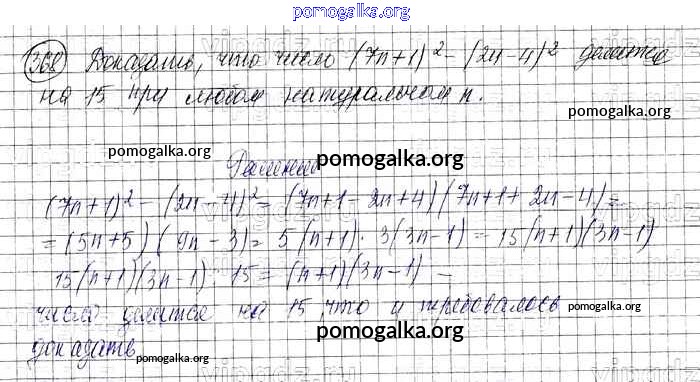 pomogalka.org
368 Доказать, что число (7n+1)² - (2n-4)² делится
на 15 при любом натуральном n.
pomogalka.org
pomogalka.org
Решение
pomogalka.org
(7n+1)² - (2n-4)² = (7n+1-2n+4)(7n+1+2n-4) =
= (5n+5)(9n-3) = 5(n+1)·3(3n-1) = 15(n+1)(3n-1)
15(n+1)(3n-1) : 15 = (n+1)(3n-1) –
число делится на 15 что и требовалось
pomogalka.org
pomogalka.org
доказать
pomogalka.org
pomogalka.org